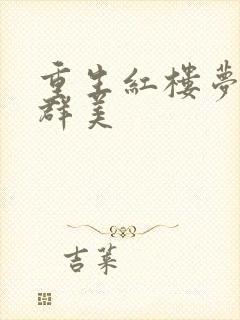 重生紅樓夢
群美
吉萊